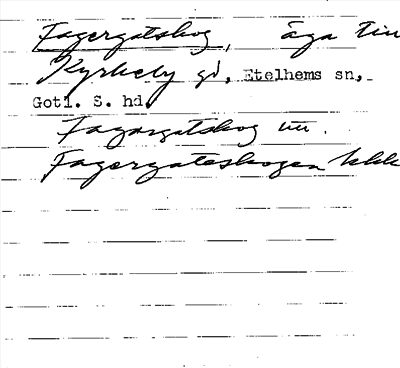 Fagergatskog, äga till
Kyrkeby gd, Etelhems sn,
Gotl. S. hd.
Fagargatskog uu.
Fagergateskogen kkk